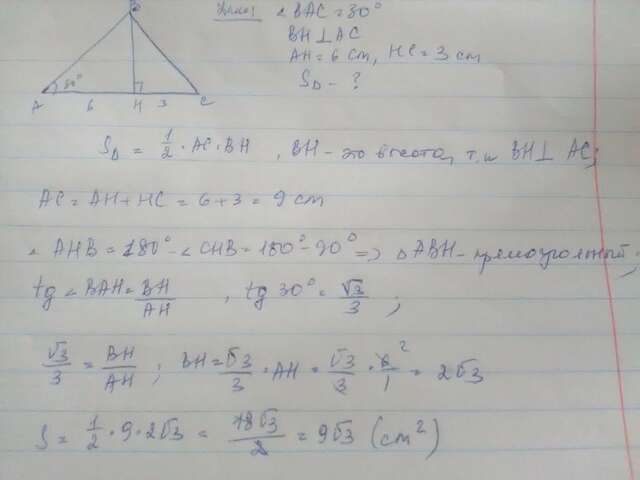 Дано: ∠ BAC = 30°
BH ⊥ AC
AH = 6 cm, HC = 3 cm
S△ - ?
B
30°
A 6 H 3 C
S△ = 1/2 · AC · BH , BH - это высота, т.к BH ⊥ AC;
AC = AH + HC = 6 + 3 = 9 cm
∠ AHB = 180° - ∠ CHB = 180° - 90° => △ ABH - прямоугольный;
tg ∠ BAH = BH/AH , tg 30° = √3/3 ;
√3/3 = BH/AH ; BH = √3/3 · AH = √3/3 · 6/1 ² = 2√3
S = 1/2 · 9 · 2√3 = 18√3/2 = 9√3 (cm²)